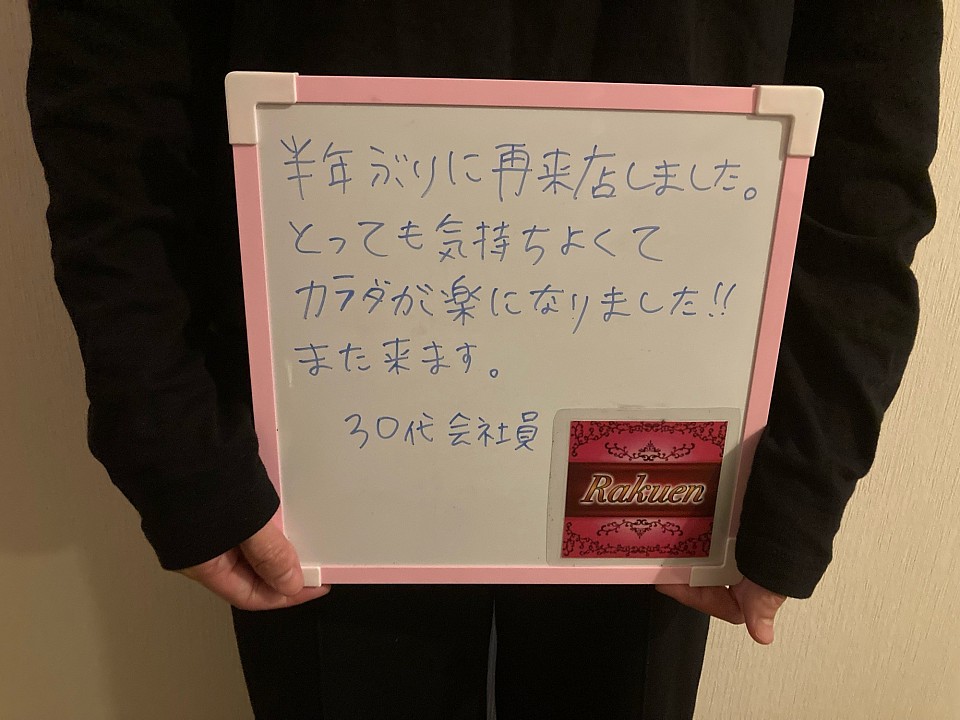 半年ぶりに再来店しました。
とっても気持ちよくて
カラダが楽になりました!!
また来ます。
30代会社員
Rakuen